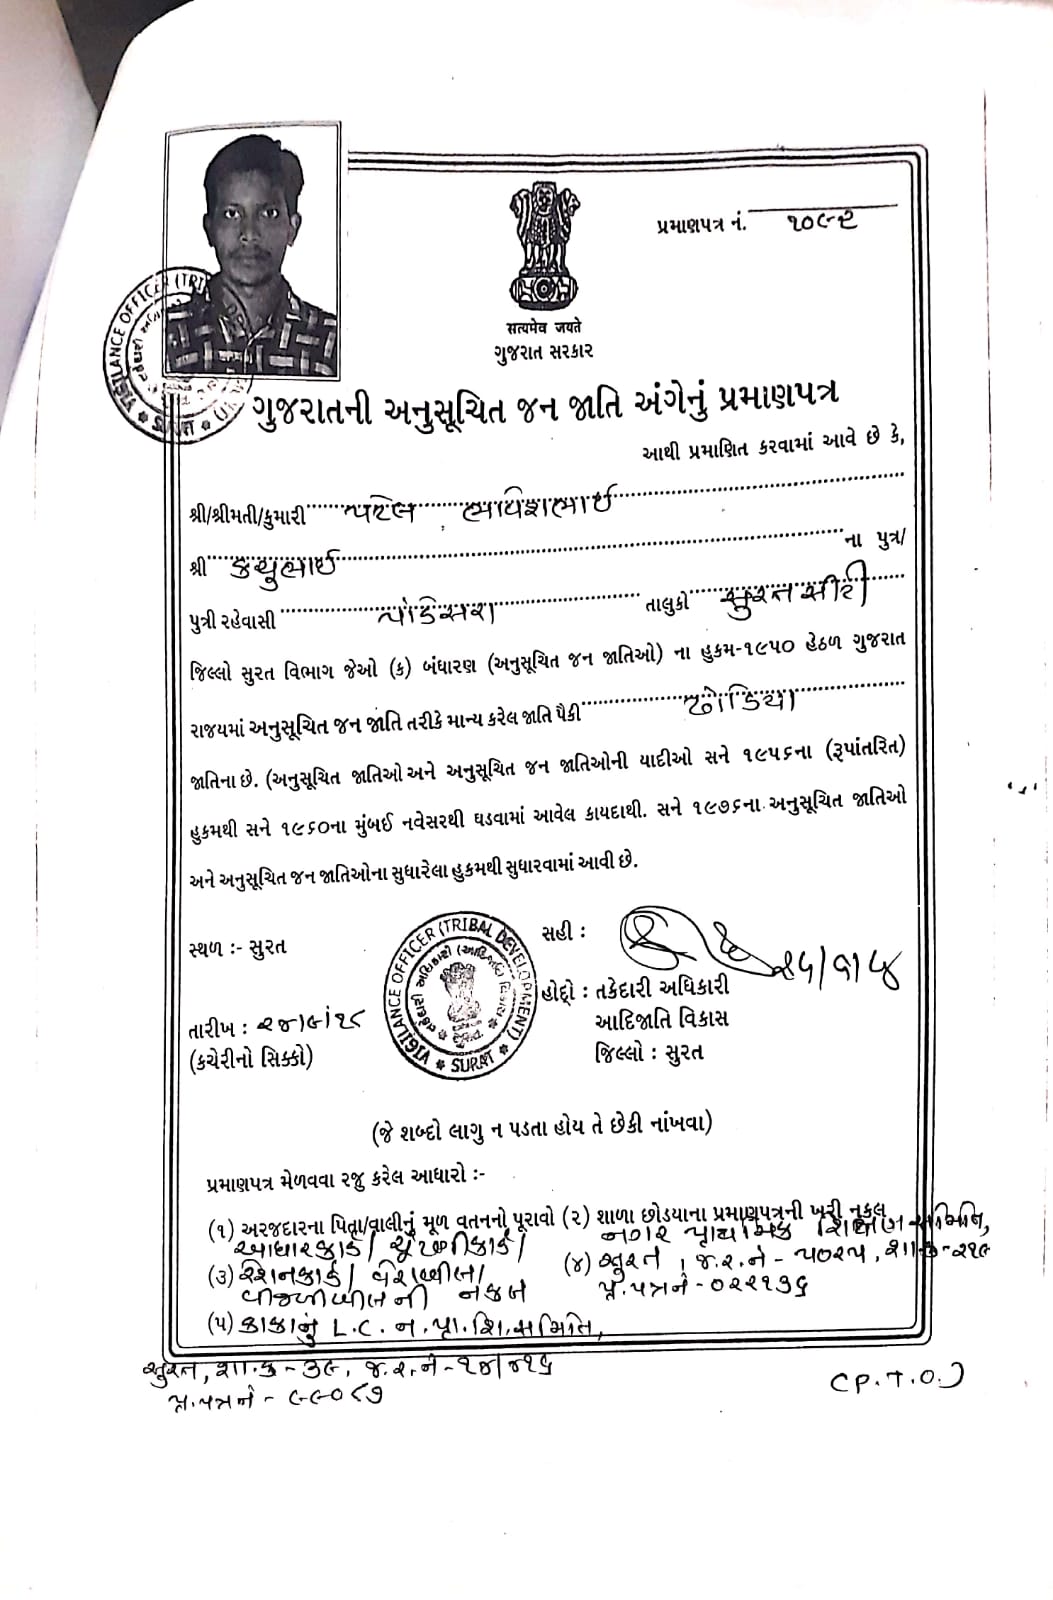 પ્રમાણપત્ર નં. ૧૦૯૨
સત્યમેવ જયતે
ગુજરાત સરકાર
ગુજરાતની અનુસૂચિત જન જાતિ અંગેનું પ્રમાણપત્ર
આથી પ્રમાણિત કરવામાં આવે છે કે,
શ્રી/શ્રીમતી/કુમારી પટેલ ભાવેશભાઈ
શ્રી કચુભાઈ ના પુત્ર/
પુત્રી રહેવાસી પાંડેસરા તાલુકો સુરત સીટી
જિલ્લો સુરત વિભાગ જેઓ (ક) બંધારણ (અનુસૂચિત જન જાતિઓ) ના હુકમ-૧૯૫૦ હેઠળ ગુજરાત
રાજયમાં અનુસૂચિત જન જાતિ તરીકે માન્ય કરેલ જાતિ પૈકી ઢોડિયા
જાતિના છે. (અનુસૂચિત જાતિઓ અને અનુસૂચિત જન જાતિઓની યાદીઓ સને ૧૯૫૬ના (રૂપાંતરિત)
હુકમથી સને ૧૯૬૦ના મુંબઈ નવેસરથી ઘડવામાં આવેલ કાયદાથી. સને ૧૯૭૬ના અનુસૂચિત જાતિઓ
અને અનુસૂચિત જન જાતિઓના સુધારેલા હુકમથી સુધારવામાં આવી છે.
સ્થળ :- સુરત
સહી :
VIGILANCE OFFICER (TRIBAL DEVELOPMENT)
SURAT
હોદ્દો : તકેદારી અધિકારી
આદિજાતિ વિકાસ
જિલ્લો : સુરત
તારીખ : ૨૪/૯/૧૮
(કચેરીનો સિક્કો)
(જે શબ્દો લાગુ ન પડતા હોય તે છેકી નાંખવા)
પ્રમાણપત્ર મેળવવા રજુ કરેલ આધારો :-
(૧) અરજદારના પિતા/વાલીનું મૂળ વતનનો પૂરાવો (૨) શાળા છોડયાના પ્રમાણપત્રની ખરી નકલ
આધારકાર્ડ / ચૂંટણીકાર્ડ / નગર પ્રાથમિક શિક્ષણ સમિતિ,
(૩) રેશનકાર્ડ / વેરાબીલ / (૪) સુરત, જ.ર.નં - ૫૦૨૫, શા.ક્ર-૨૧૯
વીજળીબીલની નકલ પ્ર.પત્રનં - ૦૨૨૧૩૬
(૫) કાકાનું L.C. ન.પ્રા.શિ.સમિતિ,
સુરત, શા.ક્ર - ૩૯, જ.ર.નં - ૧૪/૪૧૬
પ્ર.પત્રનં - ૯૯૦૮૭
(P.T.O.)